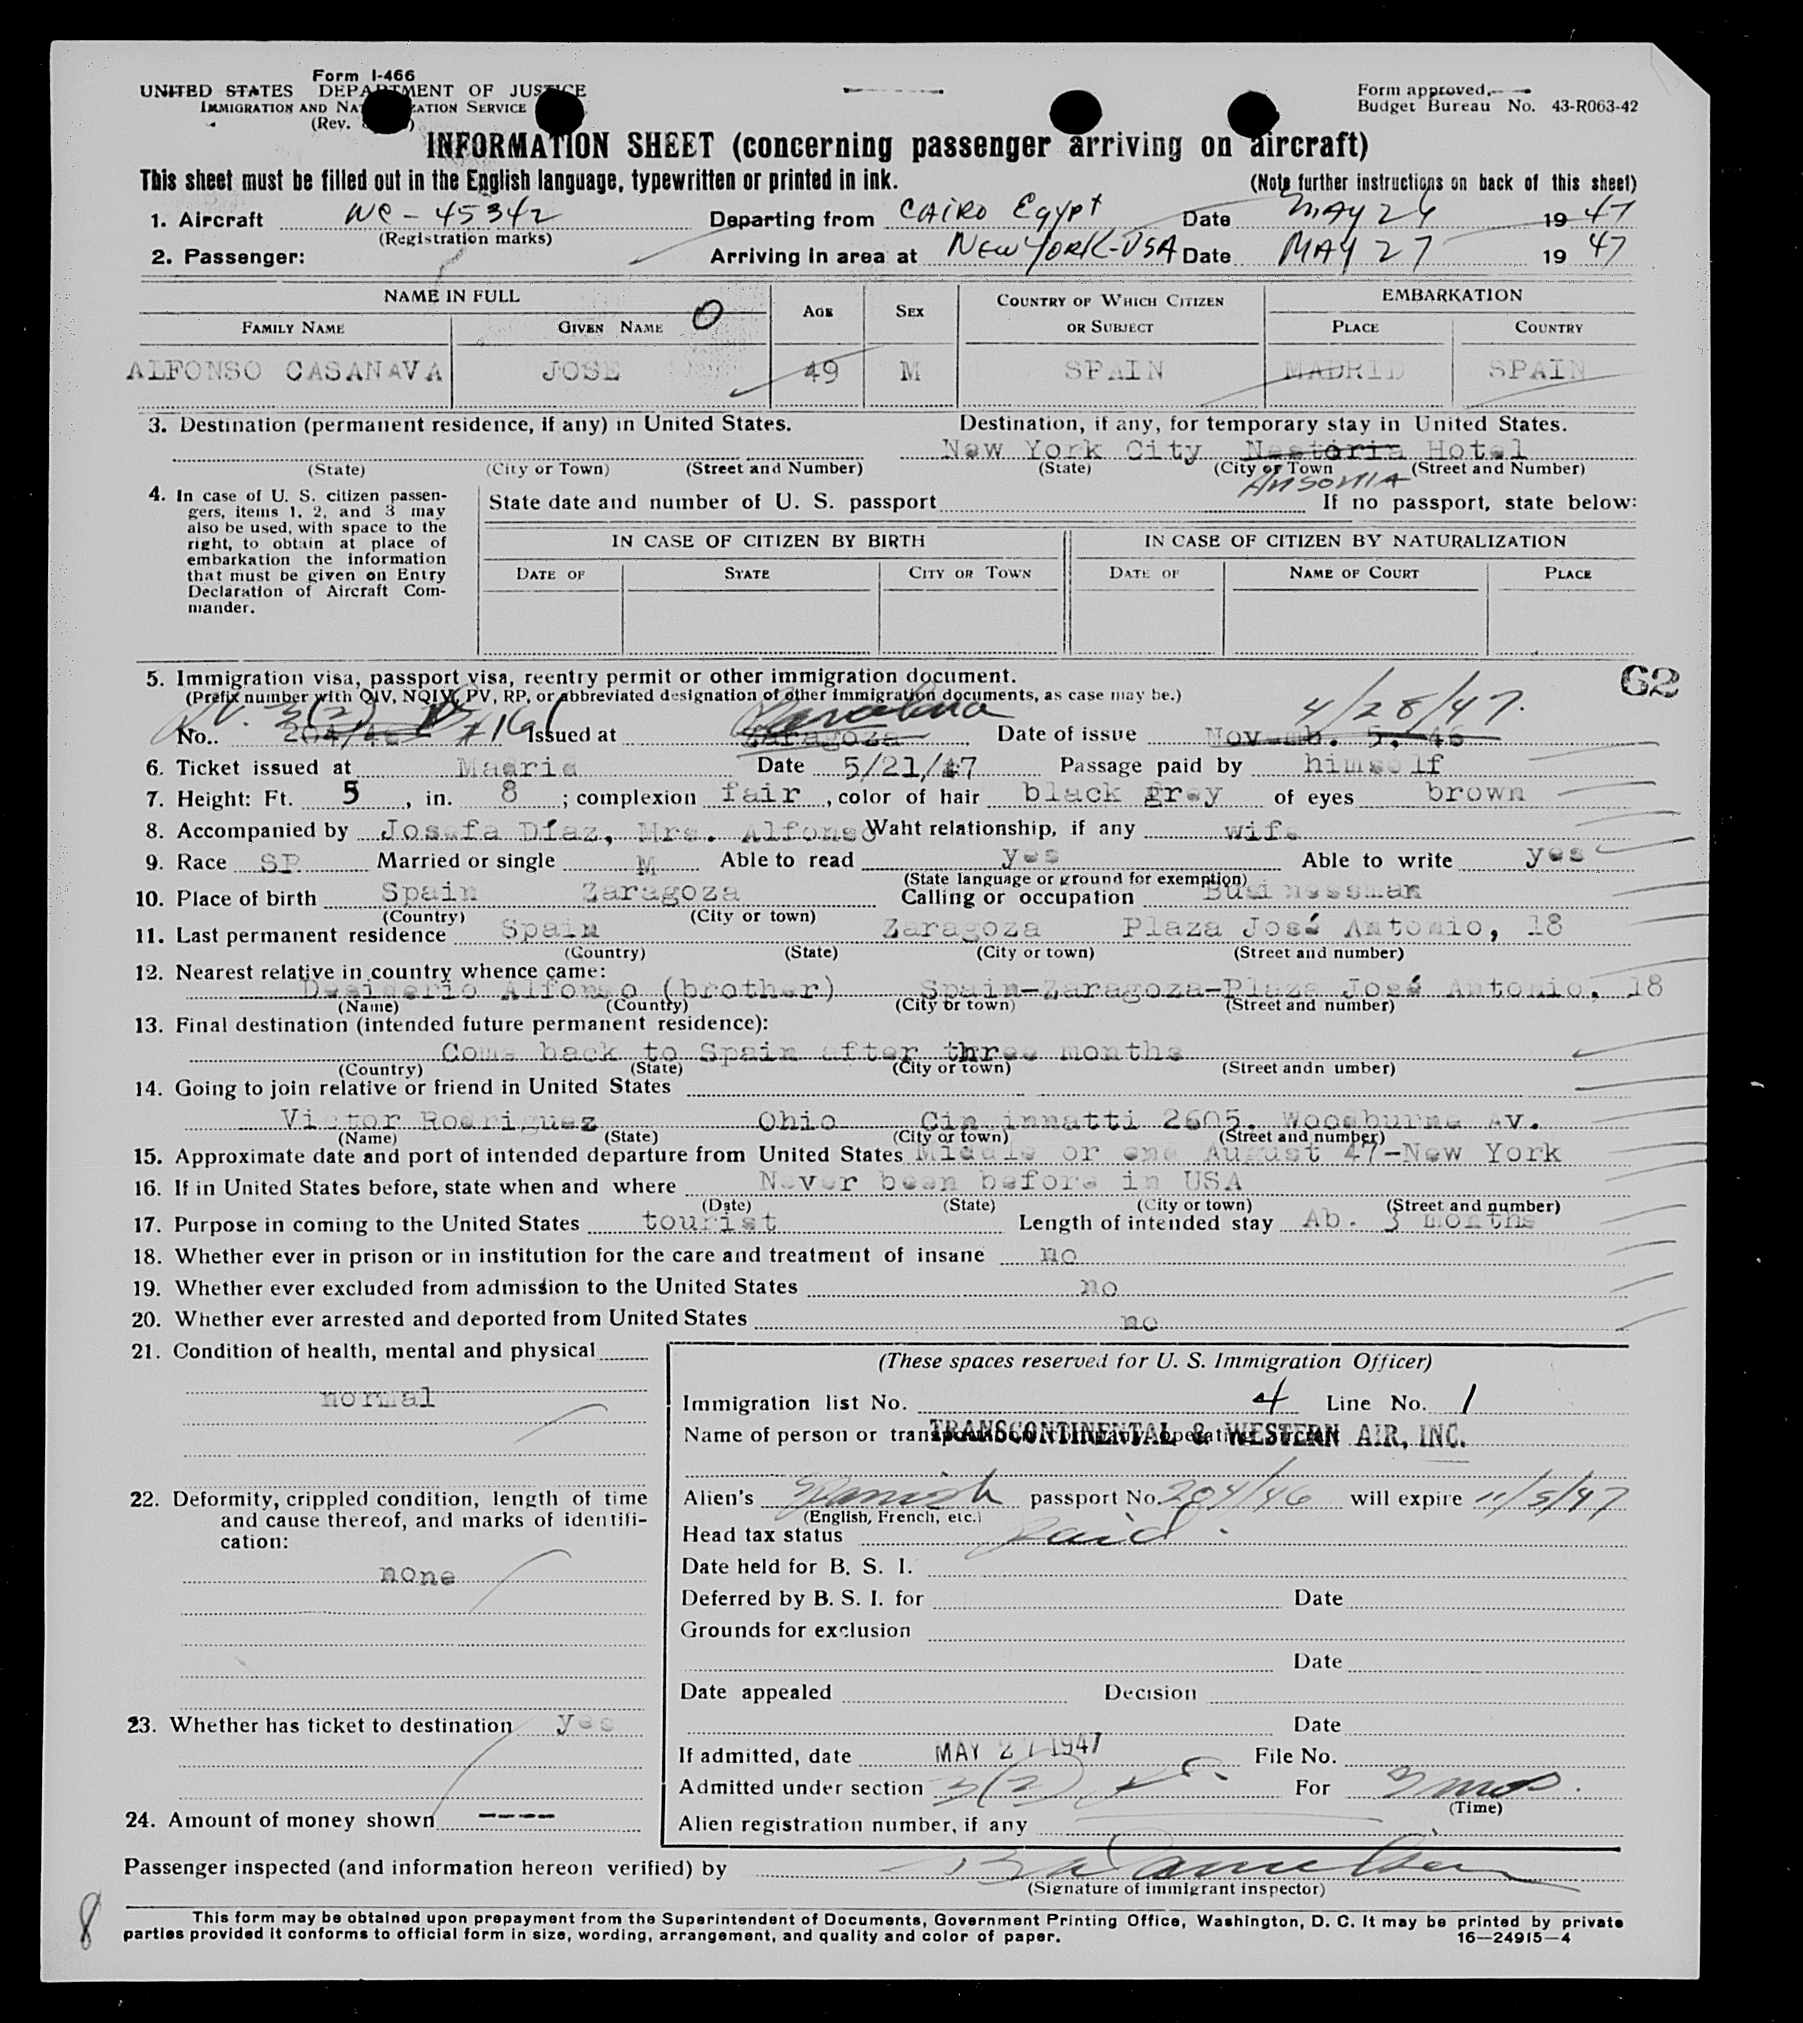 Form I-466
UNITED STATES DEPARTMENT OF JUSTICE
IMMIGRATION AND NATURALIZATION SERVICE
(Rev.
Form approved.
Budget Bureau No. 43-R063-42
INFORMATION SHEET (concerning passenger arriving on aircraft)
This sheet must be filled out in the English language, typewritten or printed in ink. (Note further instructions on back of this sheet)
1. Aircraft NC-45342 Departing from CAIRO Egypt Date MAY 24 1947
(Registration marks)
2. Passenger: Arriving in area at NEW YORK-USA Date MAY 27 1947
NAME IN FULL AGE SEX COUNTRY OF WHICH CITIZEN OR SUBJECT EMBARKATION
FAMILY NAME GIVEN NAME O PLACE COUNTRY
ALFONSO CASANAVA JOSE 49 M SPAIN MADRID SPAIN
3. Destination (permanent residence, if any) in United States. Destination, if any, for temporary stay in United States.
New York City Nestoria Hotel
(State) (City or Town) (Street and Number) (State) (City or Town (Street and Number)
ANSONIA
4. In case of U. S. citizen passen-
gers, items 1, 2, and 3 may
also be used, with space to the
right, to obtain at place of
embarkation the information
that must be given on Entry
Declaration of Aircraft Com-
mander.
State date and number of U. S. passport If no passport, state below:
IN CASE OF CITIZEN BY BIRTH IN CASE OF CITIZEN BY NATURALIZATION
DATE OF STATE CITY OR TOWN DATE OF NAME OF COURT PLACE
5. Immigration visa, passport visa, reentry permit or other immigration document. 62
(Prefix number with QIV, NQIV, PV, RP, or abbreviated designation of other immigration documents, as case may be.)
3(2) #161 Barcelona 4/28/47.
No. 204/46 Issued at Zaragoza Date of issue Novemb. 5. 46
6. Ticket issued at Madrid Date 5/21/47 Passage paid by himself
7. Height: Ft. 5, in. 8; complexion fair, color of hair black grey of eyes brown
8. Accompanied by Josefa Díaz, Mrs. Alfonso Waht relationship, if any wife
9. Race SP. Married or single M Able to read yes Able to write yes
(State language or ground for exemption)
10. Place of birth Spain Zaragoza Calling or occupation Businessman
(Country) (City or town)
11. Last permanent residence Spain Zaragoza Plaza José Antonio, 18
(Country) (State) (City or town) (Street and number)
12. Nearest relative in country whence came:
Desiderio Alfonso (brother) Spain-Zaragoza-Plaza José Antonio, 18
(Name) (Country) (City or town) (Street and number)
13. Final destination (intended future permanent residence):
Come back to Spain after three months
(Country) (State) (City or town) (Street andn umber)
14. Going to join relative or friend in United States
Victor Rodriguez Ohio Cincinnatti 2605. Woodburne Av.
(Name) (State) (City or town) (Street and number)
15. Approximate date and port of intended departure from United States Middle or end August 47-New York
16. If in United States before, state when and where Never been before in USA
(Date) (State) (City or town) (Street and number)
17. Purpose in coming to the United States tourist Length of intended stay Ab. 3 months
18. Whether ever in prison or in institution for the care and treatment of insane no
19. Whether ever excluded from admission to the United States no
20. Whether ever arrested and deported from United States no
21. Condition of health, mental and physical
normal
22. Deformity, crippled condition, length of time
and cause thereof, and marks of identifi-
cation:
none
23. Whether has ticket to destination yes
24. Amount of money shown ----
(These spaces reserved for U. S. Immigration Officer)
Immigration list No. 4 Line No. 1
Name of person or transportation company operating aircraft TRANSCONTINENTAL & WESTERN AIR, INC.
Alien's Spanish passport No. 204/46 will expire 11/5/47
(English, French, etc.)
Head tax status Paid.
Date held for B. S. I.
Deferred by B. S. I. for Date
Grounds for exclusion
Date
Date appealed Decision
Date
If admitted, date MAY 27 1947 File No.
Admitted under section 3(2) For 3 mos.
(Time)
Alien registration number, if any
Passenger inspected (and information hereon verified) by
(Signature of immigrant inspector)
8
This form may be obtained upon prepayment from the Superintendent of Documents, Government Printing Office, Washington, D. C. It may be printed by private
parties provided it conforms to official form in size, wording, arrangement, and quality and color of paper. 16—24915—4